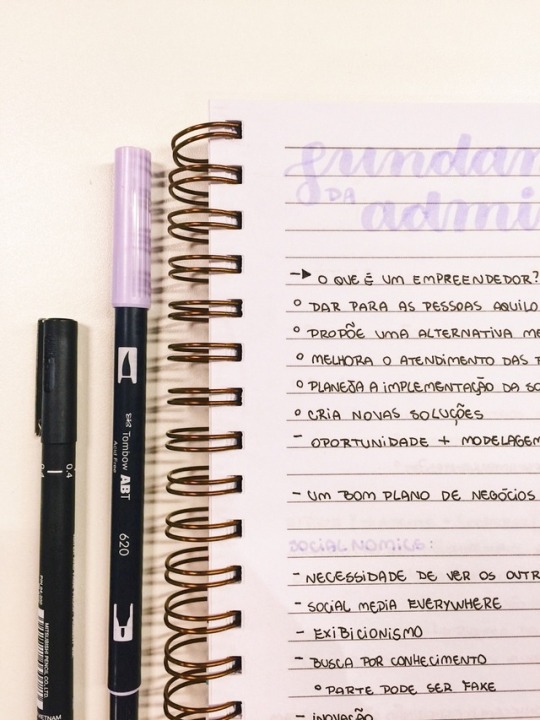 fundam
DA
admi
→ O QUE É UM EMPREENDEDOR?
° DAR PARA AS PESSOAS AQUILO
° PROPÕE UMA ALTERNATIVA ME
° MELHORA O ATENDIMENTO DAS
° PLANEJA A IMPLEMENTAÇÃO DA SO
° CRIA NOVAS SOLUÇÕES
- OPORTUNIDADE + MODELAGEM
- UM BOM PLANO DE NEGÓCIOS
SOCIALNOMICS:
- NECESSIDADE DE VER OS OUTR
- SOCIAL MEDIA EVERYWHERE
- EXIBICIONISMO
- BUSCA POR CONHECIMENTO
° PARTE PODE SER FAKE
- INOVAÇÃO
Tombow ABT
Acid Free
620
0.4
0.4
MITSUBISHI PENCIL CO.,LTD.
VIETNAM